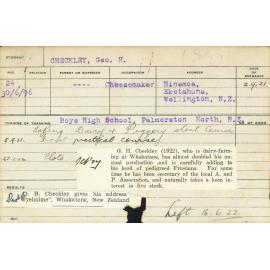 STUDENT CHECKLEY, Geo. H.
AGE RELIGION PARENT OR GUARDIAN OCCUPATION ADDRESS
24 ---- Cheesemaker Hinemoa, 2.9.21
30/6/96 Eketahuna,
Wellington, N.Z.
Boys High School, Palmerston North, N.Z.
COURSE OF TRAINING Dairy & Piggery short Course
practical course
Plots
G. H. Checkley (1922), who is dairy-farm-
ing at Whakatane, has almost doubled his an-
nual production and is carefully adding to
his herd of pedigreed Friesians. For some
time he has been secretary of the local A. and
P. Association, and naturally takes a keen in-
terest in live stock.
RESULTS
G. H. Checkley gives his address
"Ryeholme", Whakatane, New Zealand.
Left 16.6.22